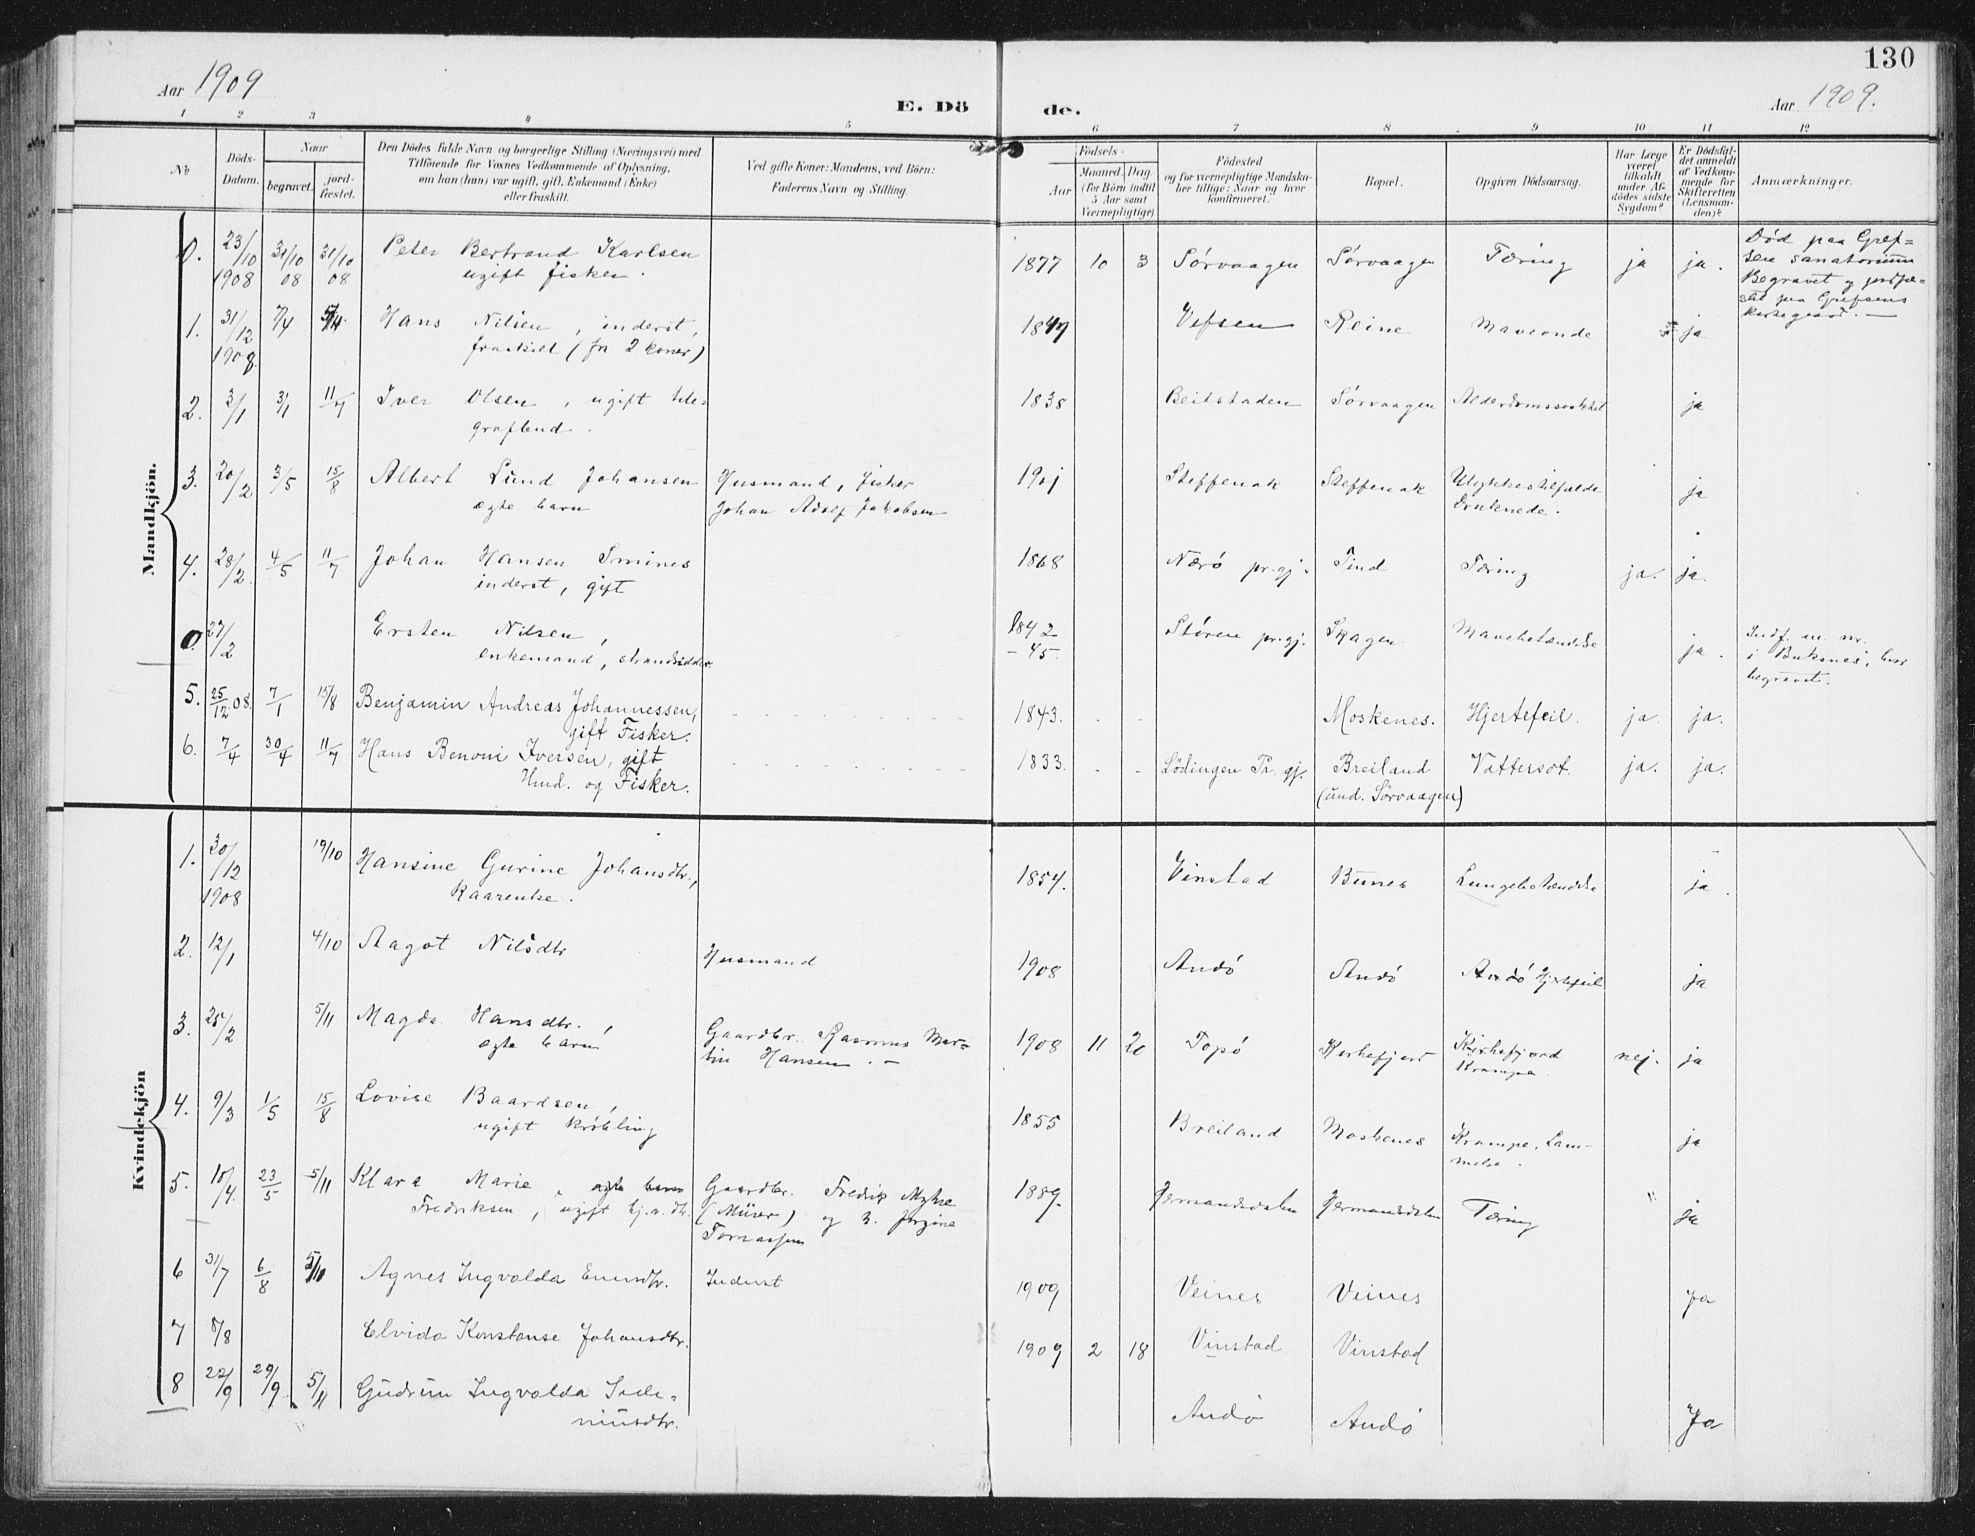 130
Aar 1909
E. Dö
de.
Aar 1909.
1 2 3 4 5 6 7 8 9 10 11 12
No
Döds-
Datum.
Naar
begravet.
jord-
fæstet.
Den Dödes fulde Navn og borgerlige Stilling (Næringsvei) med
Tilföiende for Voxnes Vedkommende af Oplysning,
om han (hun) var ugift, gift, Enkemand (Enke)
eller fraskilt.
Ved gifte Koner: Mandens, ved Börn:
Faderens Navn og Stilling.
Födsels-
Aar
Maaned, Dag
(for Börn indtil
5 Aar samt
Værnepligtige)
Födested
og for værnepligtige Mandska-
ber tillige: Naar og hvor
konfirmeret.
Bopæl.
Opgiven Dödsaarsag.
Har Læge
været
tilkaldt
under Af-
dödes sidste
Sygdom?
Er Dödsfal-
det anmeldt
af Vedkom-
mende for
Skifteretten
(Lensman-
den)?
Anmærkninger.
Mandkjön.
0. 23/10 1908 31/10 08 31/10 08 Peter Bertrand Karlsen 1877 10 3 Sørvaagen Sørvaagen Tæring ja ja.
ugift fisker.
Død paa Gref=
sen sanatorium
Begravet og jordfæ=
stet paa Grefsens
kirkegaard. —
1. 31/12 1908. 7/4 Hans Nilsen, inderst, 1847 Vefsen Reine Maveonde ja
fraskilt (fra 2 koner)
2. 3/1 3/1 11/7 Iver Olsen, ugift tele= 1838 Beitstaden Sørvaagen Alderdomssvakhet ja
grafbud.
3. 20/2 3/5 15/8 Albert Lund Johansen Husmand, fisker 1901 Steffenak Steffenak Ulykkestilfælde ja
ægte barn Johan Adolf Jakobsen Druknede.
4. 28/2. 4/5 11/7 Johan Hansen Smines 1868 Nærö pr.gj. Tind Tæring ja. ja.
inderst, gift
0 27/2 Ersten Nilsen, 1842 - 45. Støren pr.gj. Skagen ja.
enkemand, strandsidder
Indf. u. nr.
i Buksnes, hvor
begravet.
5. 25/12.08. 7/1 15/8 Benjamin Andreas Johannessen, 1843. Moskenes. Hjertefeil. ja. ja.
gift Fisker.
6. 7/4 30/4 11/7 Hans Benoni Iversen, gift 1833. Lödingen Pr. gj. Breiland Vattersot. ja. ja.
Hmd. og Fisker. (und. Sörvaagen)
Kvindekjön
1. 30/12 1908 19/10 Hansine Gurine Johansdtr., 1854. Vinstad Bunes Lungebetændelse ja.
Kaarenke.
2. 12/1 4/10 Aagot Nilsdtr Husmand 1908 Andö Andö Andö Hjertefeil ja
3. 25/2 5/11 Magda Hansdtr., Gaardbr. Rasmus Mar= 1908 11 20 Topö Kirkefjord Kirkefjord nej. ja
ægte barn tin Hansen. — Krampe
4. 9/3 1/5 15/8 Lovise Baardsen, 1855 Breiland Moskenes Krampe, Lam= ja
ugift krøbling melse.
5. 18/4. 23/5 5/11 Klara Marie, ægte barn Gaardbr. Fredrik 1889. Hermandsdalen Hermansdalen Tæring " ja
Fredriksen, ugift
6 31/7 6/8 5/10 Agnes Ingvolda Inderst 1909 Veines Veines Ja
7 8/8 Elvida Konstanse Johansdtr. 1909 2 18 Vinstad Vinstad
8 22/9 29/9. 5/11 Gudrun Ingvolda
Andö Andö Ja